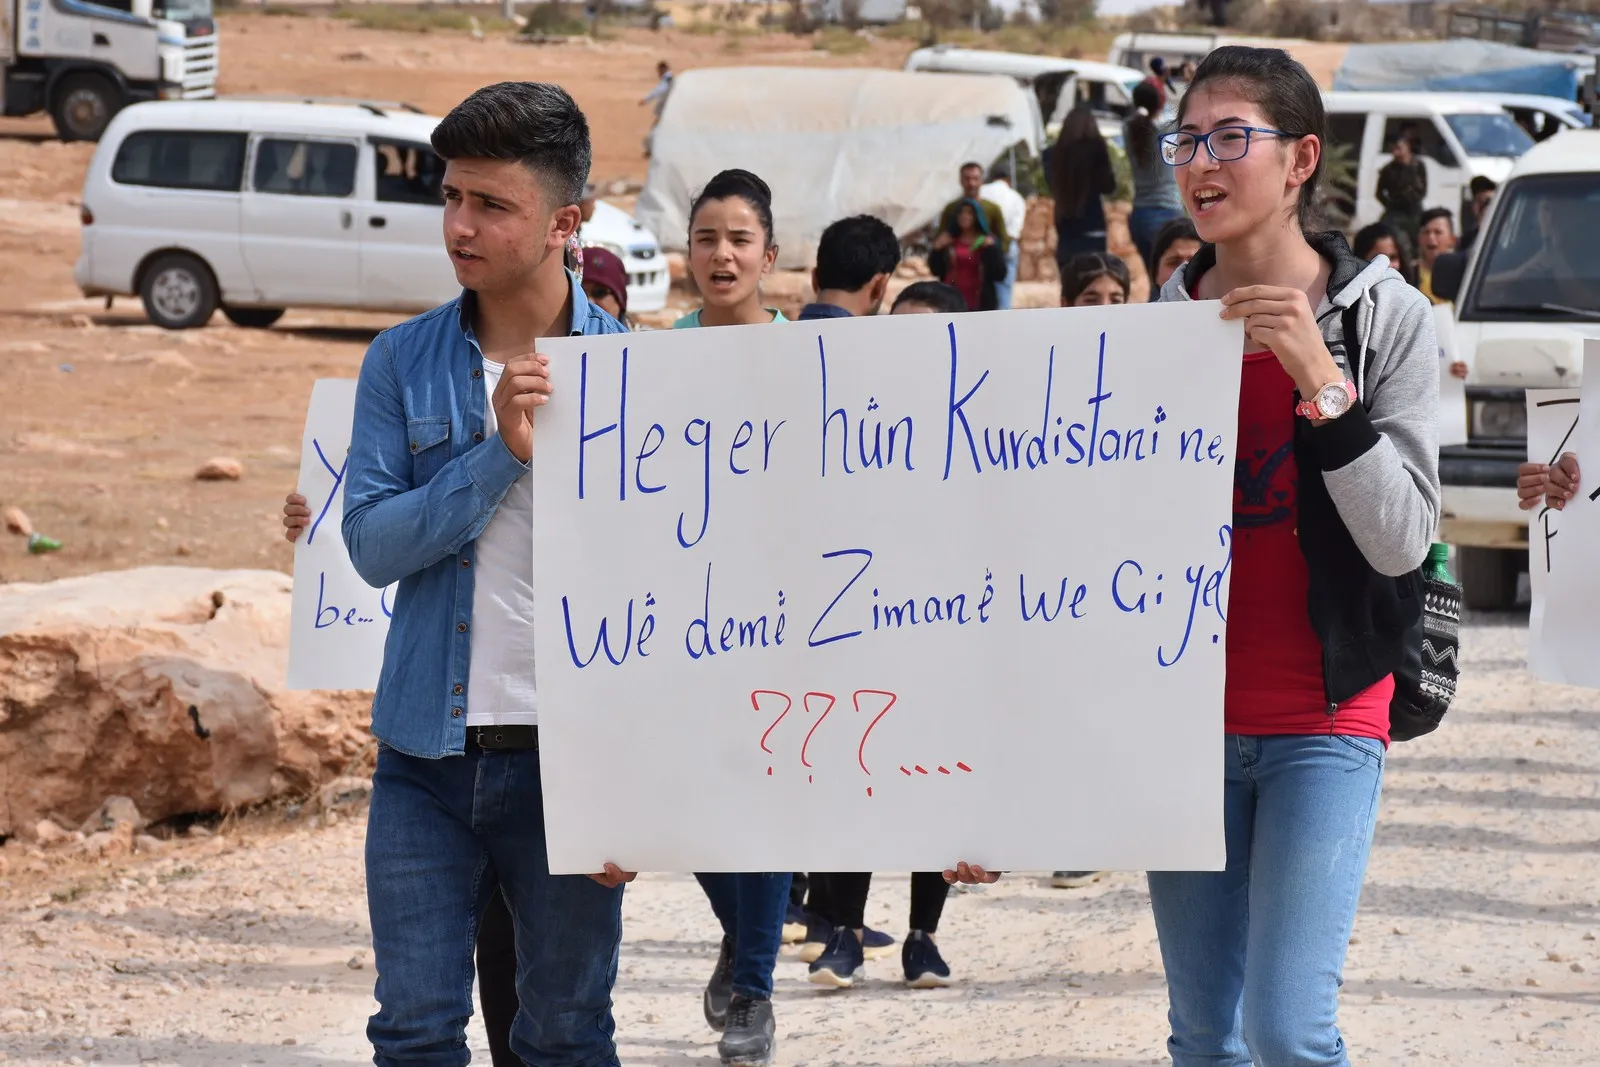 Heger hûn Kurdistanî ne,
Wê demê Zimanê We Gi ye?
???....
be...